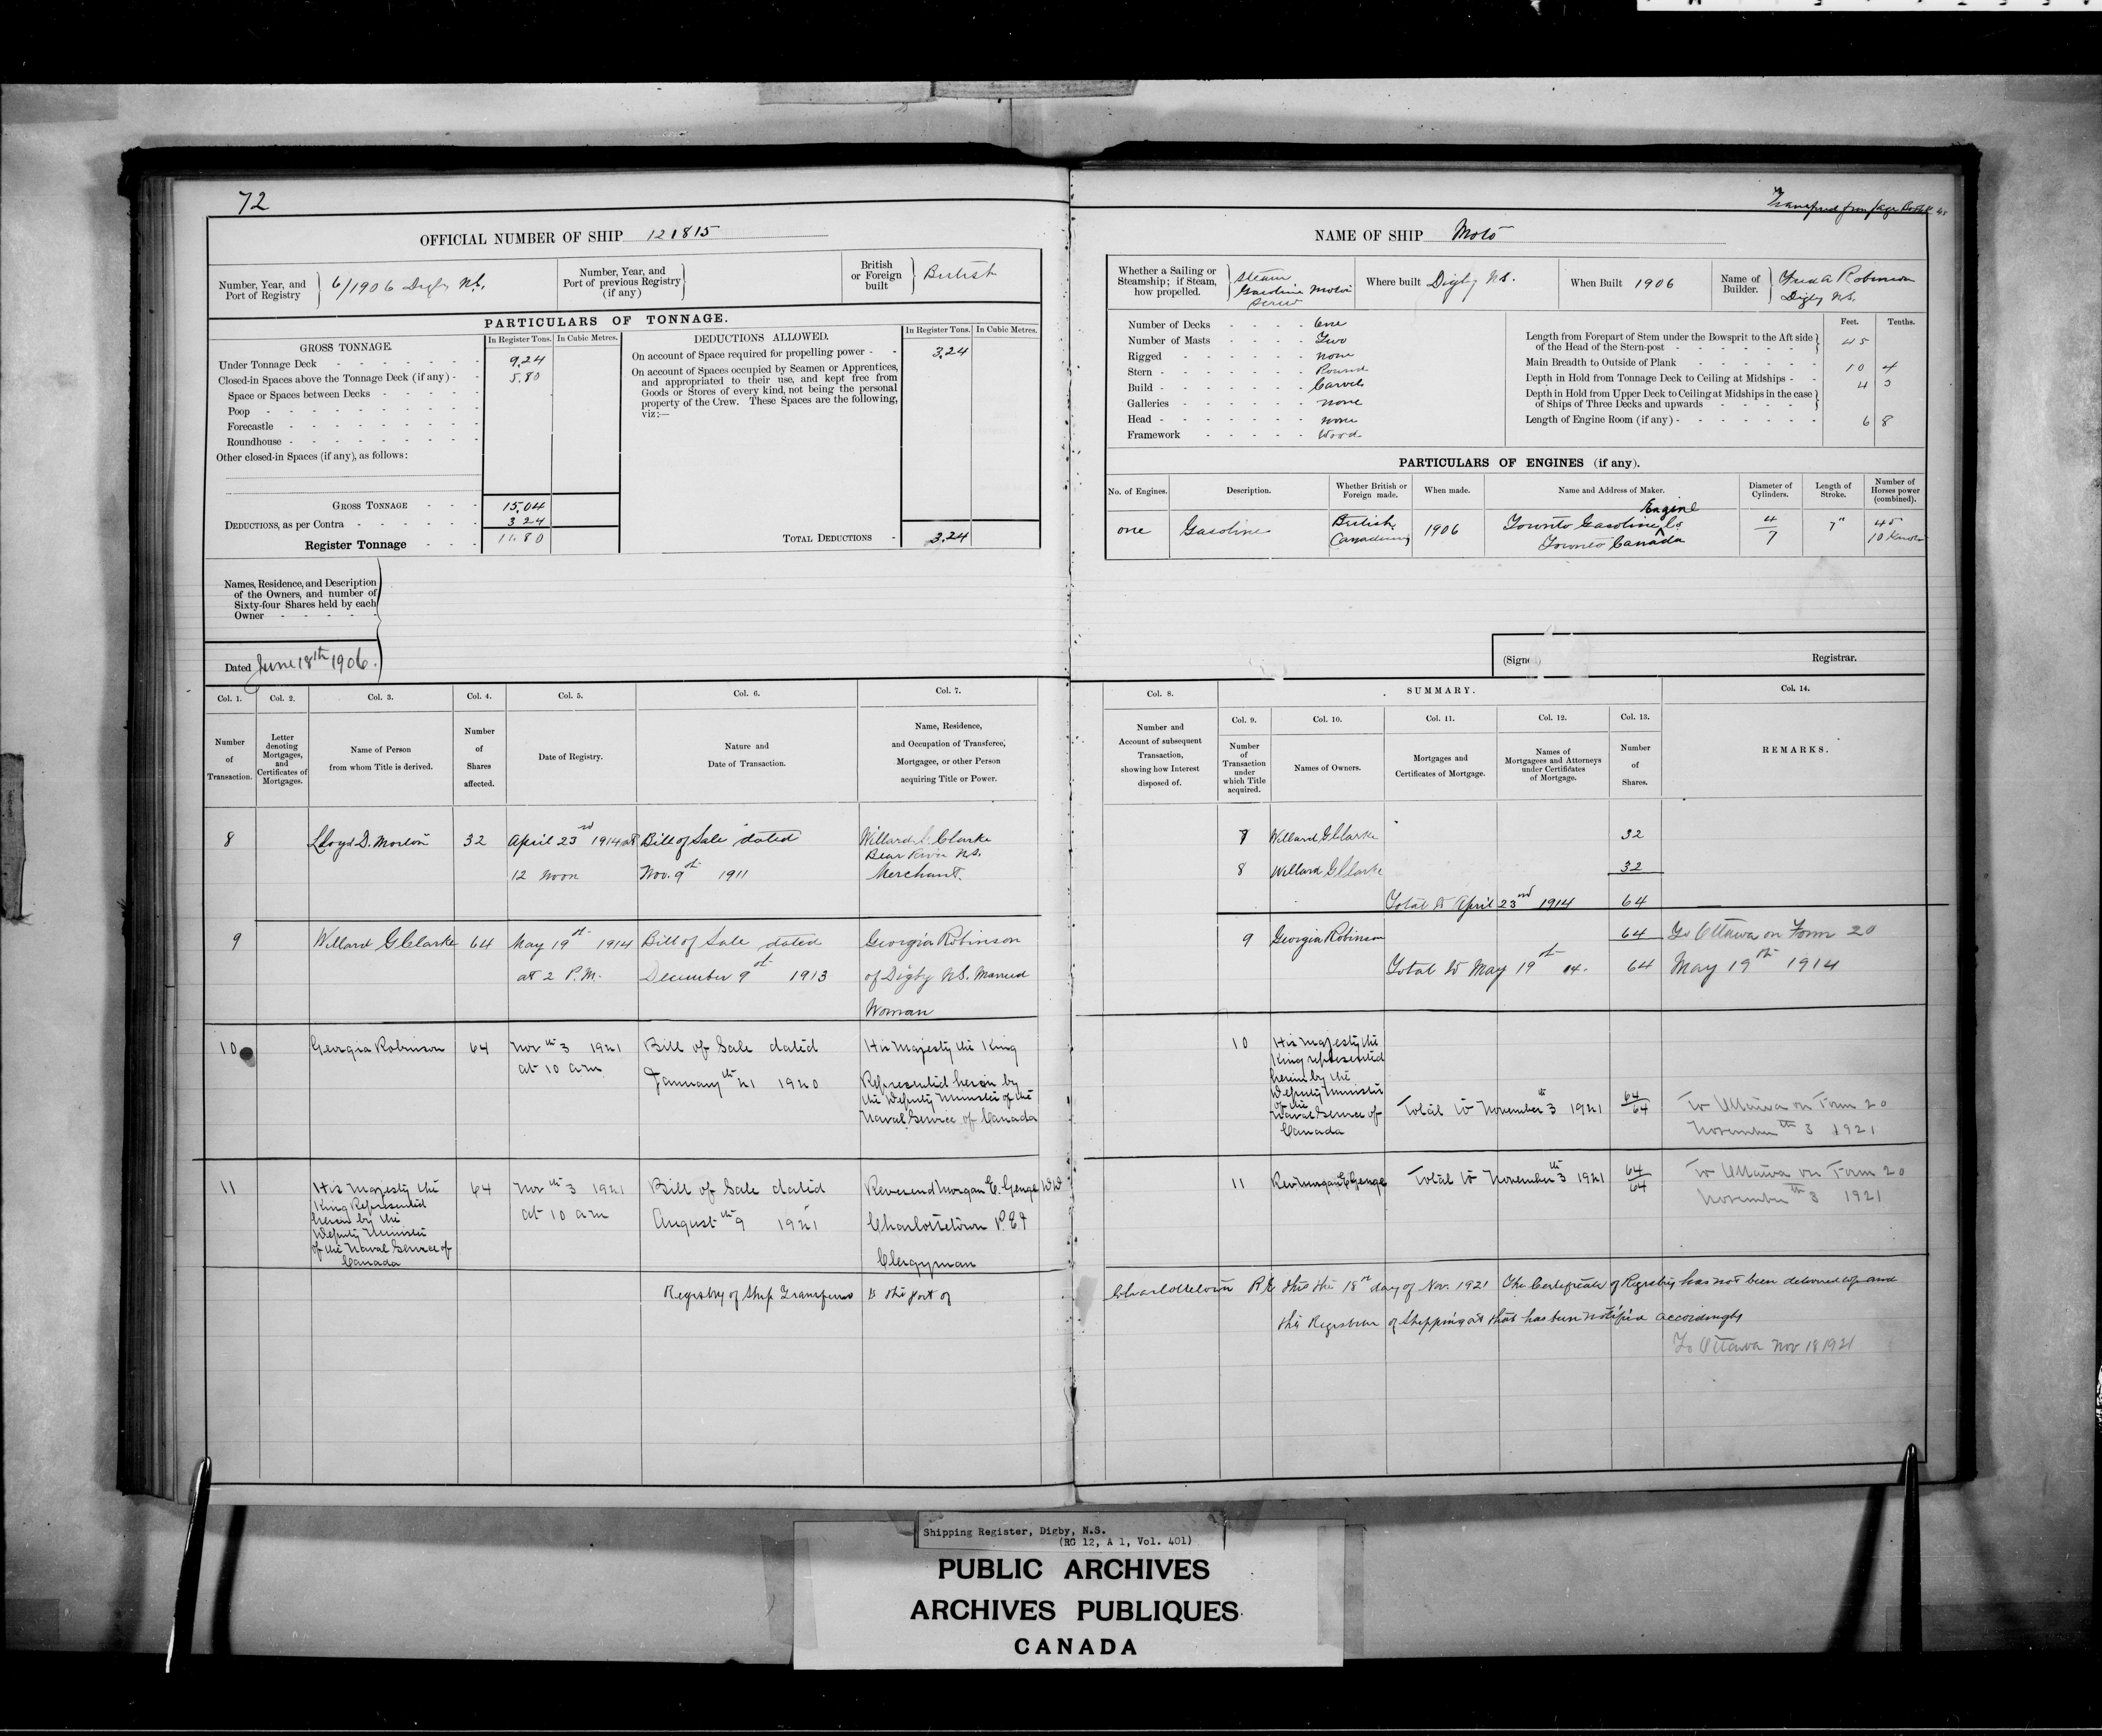 72
OFFICIAL NUMBER OF SHIP 121815
Number, Year, and Port of Registry
6/1906 Digby N.S.
Number, Year, and Port of previous Registry (if any)
British or Foreign built
British
PARTICULARS OF TONNAGE.
GROSS TONNAGE.
In Register Tons. In Cubic Metres.
Under Tonnage Deck 9.24
Closed-in Spaces above the Tonnage Deck (if any) 5.80
Space or Spaces between Decks
Poop
Forecastle
Roundhouse
Other closed-in Spaces (if any), as follows:
GROSS TONNAGE 15.04
DEDUCTIONS, as per Contra 3.24
Register Tonnage 11.80
DEDUCTIONS ALLOWED.
In Register Tons. In Cubic Metres.
On account of Space required for propelling power 3.24
On account of Spaces occupied by Seamen or Apprentices,
and appropriated to their use, and kept free from
Goods or Stores of every kind, not being the personal
property of the Crew. These Spaces are the following,
viz:—
TOTAL DEDUCTIONS 3.24
Names, Residence, and Description
of the Owners, and number of
Sixty-four Shares held by each
Owner
Dated June 18th 1906.
Col. 1. Col. 2. Col. 3. Col. 4. Col. 5. Col. 6. Col. 7.
Number of Transaction.
Letter denoting Mortgages, and Certificates of Mortgages.
Name of Person from whom Title is derived.
Number of Shares affected.
Date of Registry.
Nature and Date of Transaction.
Name, Residence, and Occupation of Transferee, Mortgagee, or other Person acquiring Title or Power.
8 Lloyd D. Morton 32 April 23rd 1914 at Bill of Sale dated Willard G. Clarke
Bear River N.S.
12 noon Nov. 9th 1911 Merchant.
9 Willard G Clarke 64 May 19th 1914 Bill of Sale dated Georgia Robinson
at 2 P.M. December 9th 1913 of Digby N.S. Married
Woman
10 Georgia Robinson 64 Nov th 3 1921 Bill of Sale dated His Majesty the King
at 10 am January th 21 1920 Represented herein by
the Deputy Minister of the
Naval Service of Canada
11 His Majesty the 64 Nov th 3 1921 Bill of Sale dated Reverend Morgan E. Genge
King Represented
herein by the at 10 am August th 9 1921 Charlottetown P.E.I
Deputy Minister
of the Naval Service of
Canada Clergyman
Registry of Ship Transferred to the port of
NAME OF SHIP Moto
Whether a Sailing or Steamship; if Steam, how propelled.
Steam
Gasoline Motor
Screw
Where built Digby N.S.
When Built 1906
Name of Builder.
Robinson
Digby N.S.
Number of Decks One
Number of Masts Two
Rigged none
Stern Round
Build Carvel
Galleries none
Head none
Framework Wood
Feet. Tenths.
Length from Forepart of Stem under the Bowsprit to the Aft side
of the Head of the Stern-post 45
Main Breadth to Outside of Plank 10 4
Depth in Hold from Tonnage Deck to Ceiling at Midships 4 3
Depth in Hold from Upper Deck to Ceiling at Midships in the case
of Ships of Three Decks and upwards
Length of Engine Room (if any) 6 8
PARTICULARS OF ENGINES (if any).
No. of Engines. Description. Whether British or Foreign made. When made. Name and Address of Maker. Diameter of Cylinders. Length of Stroke. Number of Horses power (combined).
Engine
one Gasoline British 1906 Toronto Gasoline Co 4 7" 45
Toronto Canada 7 10
(Signed) Registrar.
Col. 8. SUMMARY. Col. 14.
Col. 9. Col. 10. Col. 11. Col. 12. Col. 13.
Number and Account of subsequent Transaction, showing how Interest disposed of.
Number of Transaction under which Title acquired.
Names of Owners.
Mortgages and Certificates of Mortgage.
Names of Mortgagees and Attorneys under Certificates of Mortgage.
Number of Shares.
REMARKS.
7 Willard G Clarke 32
8 Willard G Clarke 32
Total to April 23rd 1914 64
9 Georgia Robinson 64 To Ottawa on Form 20
Total to May 19th 14. 64 May 19th 1914
10 His Majesty the
King represented
herein by the
Deputy Minister
of the
Naval Service of Total to November th 3 1921 64/64 To Ottawa on Form 20
Canada November th 3 1921
11 Rev Morgan E Genge Total to November th 3 1921 64/64 To Ottawa on Form 20
November th 3 1921
Charlottetown P.E this the 18th day of Nov. 1921 The Certificate of Registry has not been delivered up and
the Registrar of Shipping at that has been notified accordingly
To Ottawa Nov 18 1921
Shipping Register, Digby, N.S.
(RG 12, A 1, Vol. 401)
PUBLIC ARCHIVES
ARCHIVES PUBLIQUES
CANADA